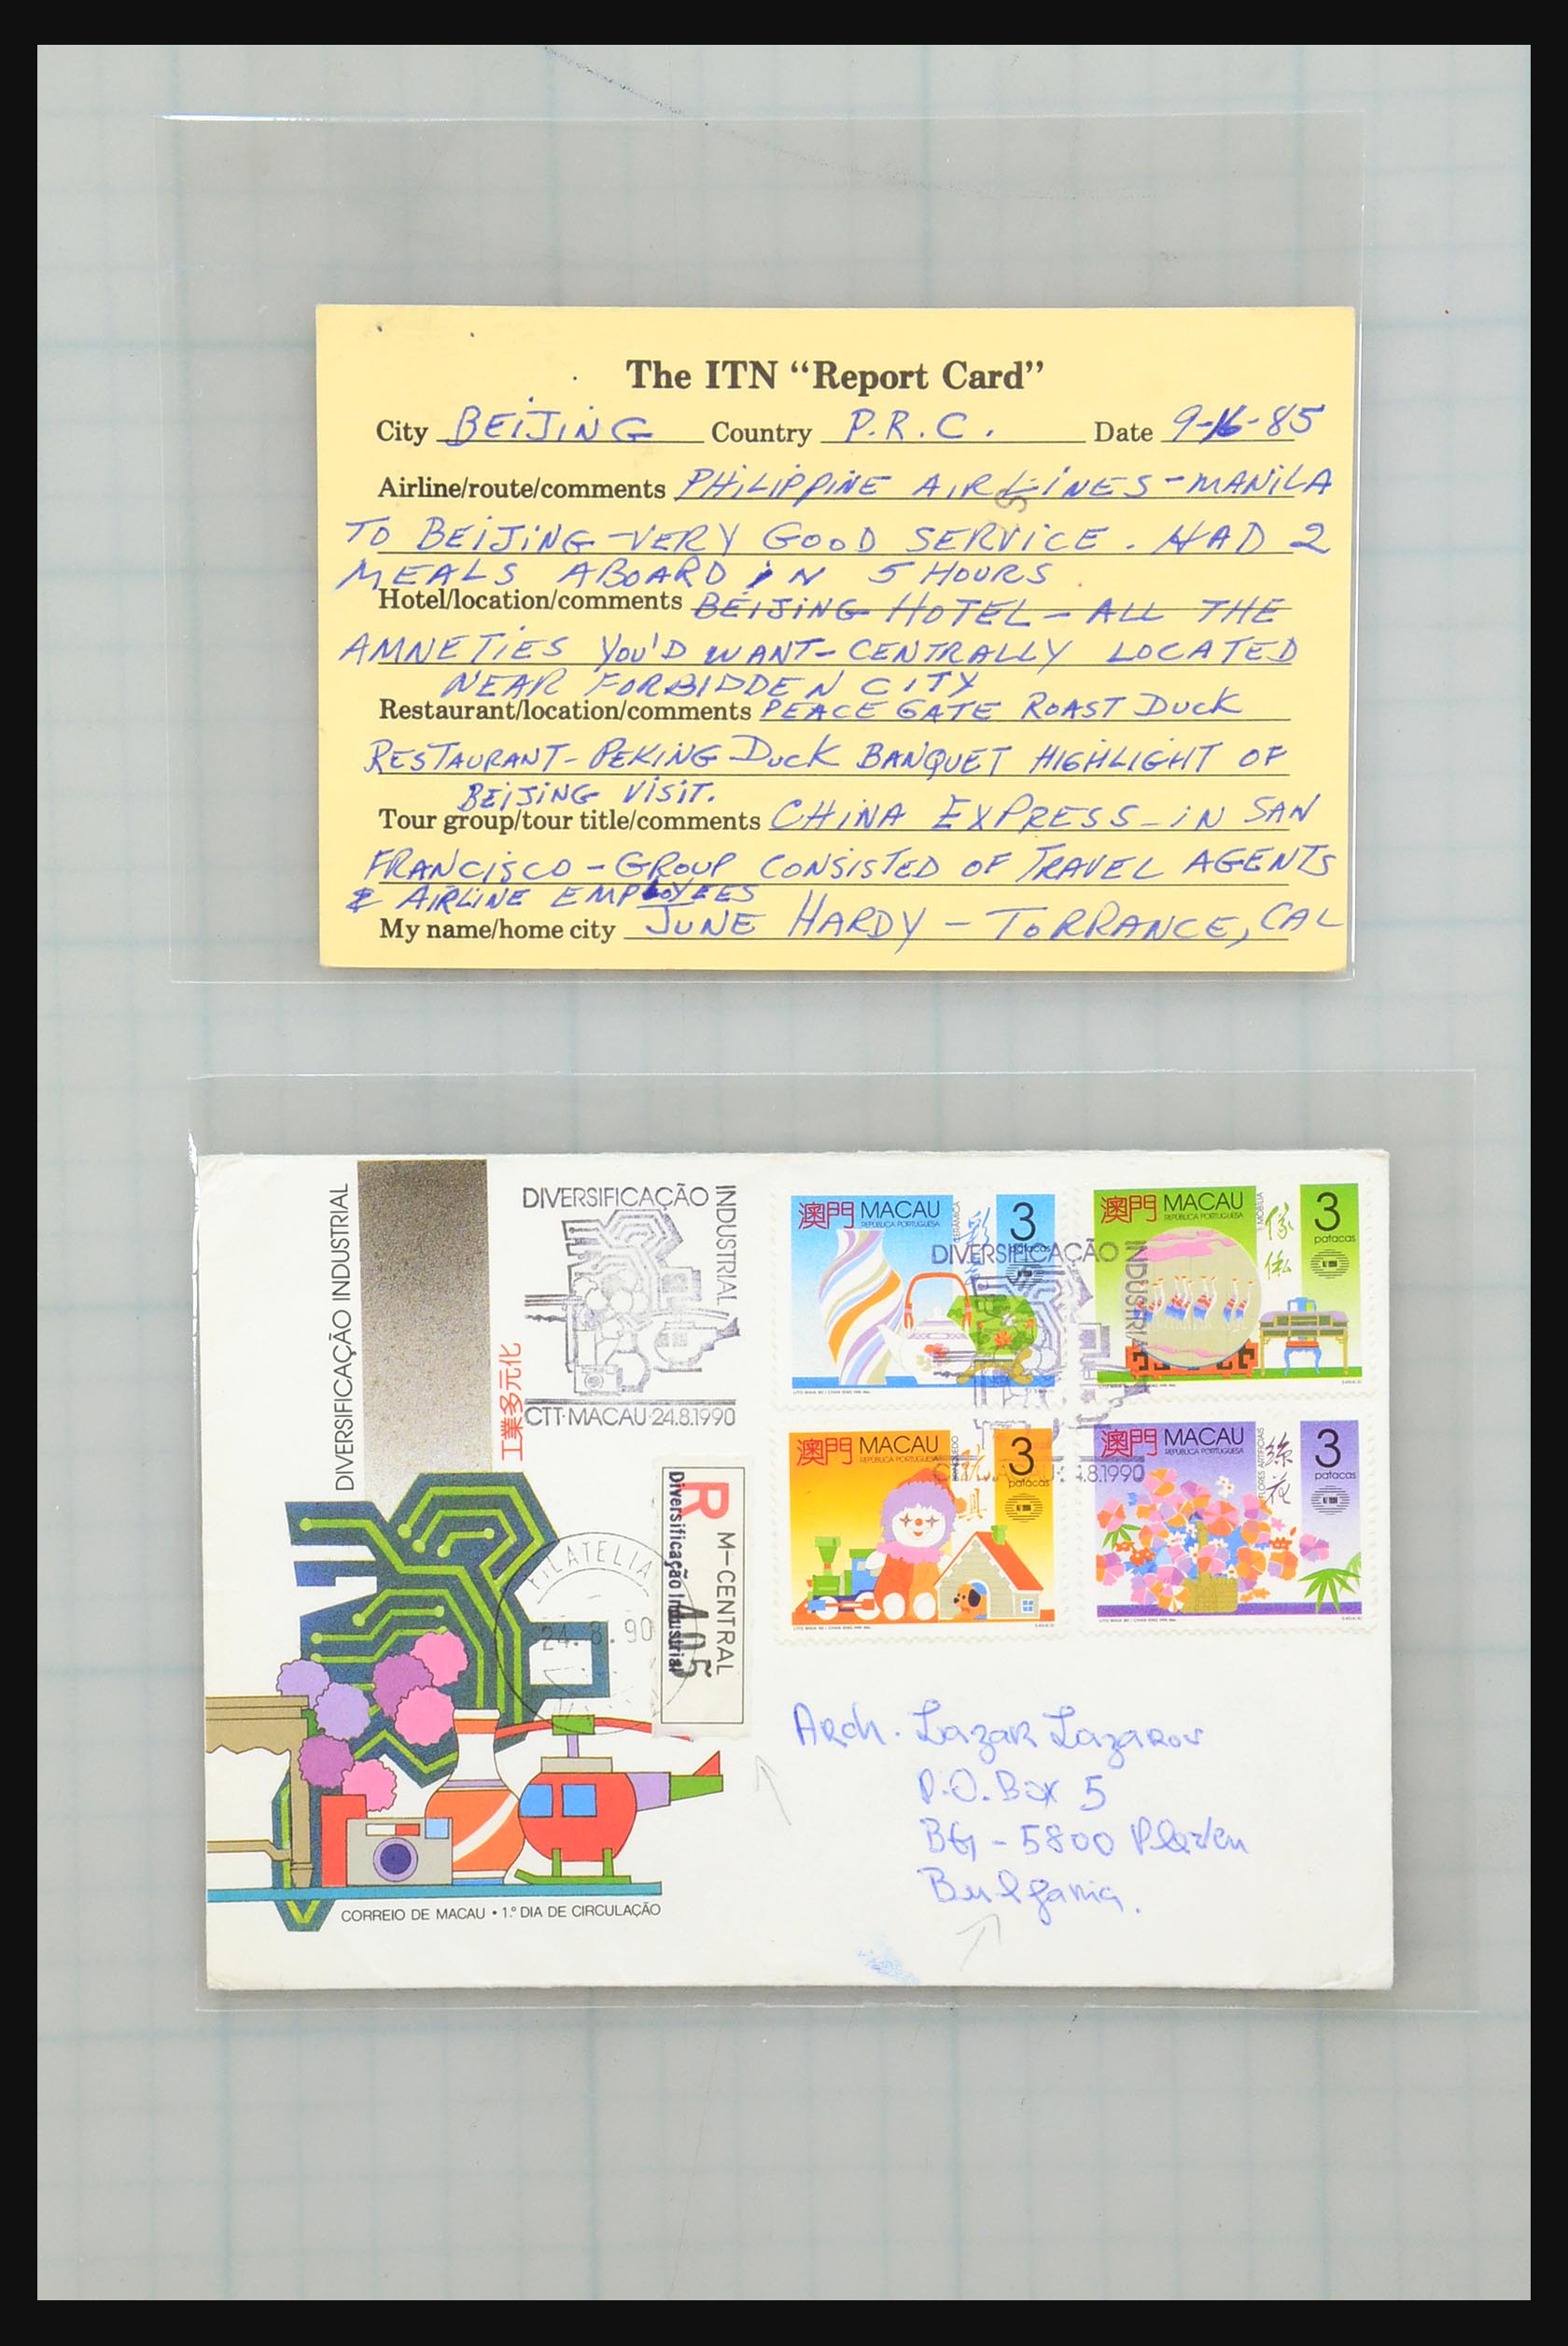 The ITN “Report Card”
City BEIJING Country P.R.C. Date 9-16-85
Airline/route/comments PHILIPPINE AIRLINES - MANILA
TO BEIJING - VERY GOOD SERVICE. HAD 2
MEALS ABOARD IN 5 HOURS
Hotel/location/comments BEIJING HOTEL - ALL THE
AMNETIES YOU'D WANT - CENTRALLY LOCATED
NEAR FORBIDDEN CITY
Restaurant/location/comments PEACE GATE ROAST DUCK
RESTAURANT - PEKING DUCK BANQUET HIGHLIGHT OF
BEIJING VISIT.
Tour group/tour title/comments CHINA EXPRESS - IN SAN
FRANCISCO - GROUP CONSISTED OF TRAVEL AGENTS
& AIRLINE EMPLOYEES
My name/home city JUNE HARDY - TORRANCE, CAL
DIVERSIFICAÇÃO INDUSTRIAL
工業多元化
DIVERSIFICAÇÃO INDUSTRIAL
CTT·MACAU·24.8.1990
澳門 MACAU
REPÚBLICA PORTUGUESA
CERÂMICA
彩
3
patacas
澳門 MACAU
REPÚBLICA PORTUGUESA
MOBÍLIA
傢俬
3
patacas
DIVERSIFICAÇÃO INDUSTRIAL
澳門 MACAU
REPÚBLICA PORTUGUESA
BRINQUEDO
玩具
3
patacas
澳門 MACAU
REPÚBLICA PORTUGUESA
FLORES ARTIFICIAIS
絲花
3
patacas
24.8.1990
R
M-CENTRAL
Diversificação Industrial
405
FILATELIA
24. 8. 90
Arch. Lazar Lazarov
P.O. Box 5
BG - 5800 Pleven
Bulgaria.
CORREIO DE MACAU • 1.º DIA DE CIRCULAÇÃO